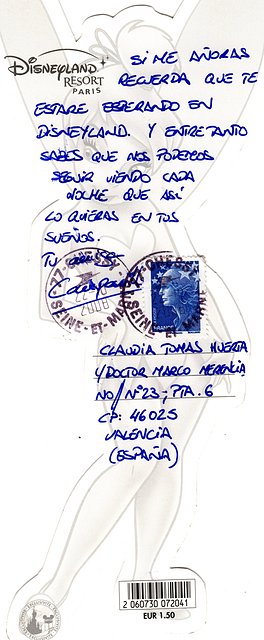 DISNEYLAND
RESORT
PARIS
SI ME AÑORAS
RECUERDA QUE TE
ESTARE ESPERANDO EN
DISNEYLAND. Y ENTRETANTO
SABES QUE NOS PODEMOS
SEGUIR VIENDO CADA
NOCHE QUE ASÍ
LO QUIERAS EN TUS
SUEÑOS.
TU
77-CHESSY
SEINE-ET-MARNE
FRANCE
CLAUDIA TOMAS HUERTA
Y DOCTOR MARCO MERENCIA
NO/Nº23, PTA. 6
CP: 46025
VALENCIA
(ESPAÑA)
2 060730 072041
EUR 1.50